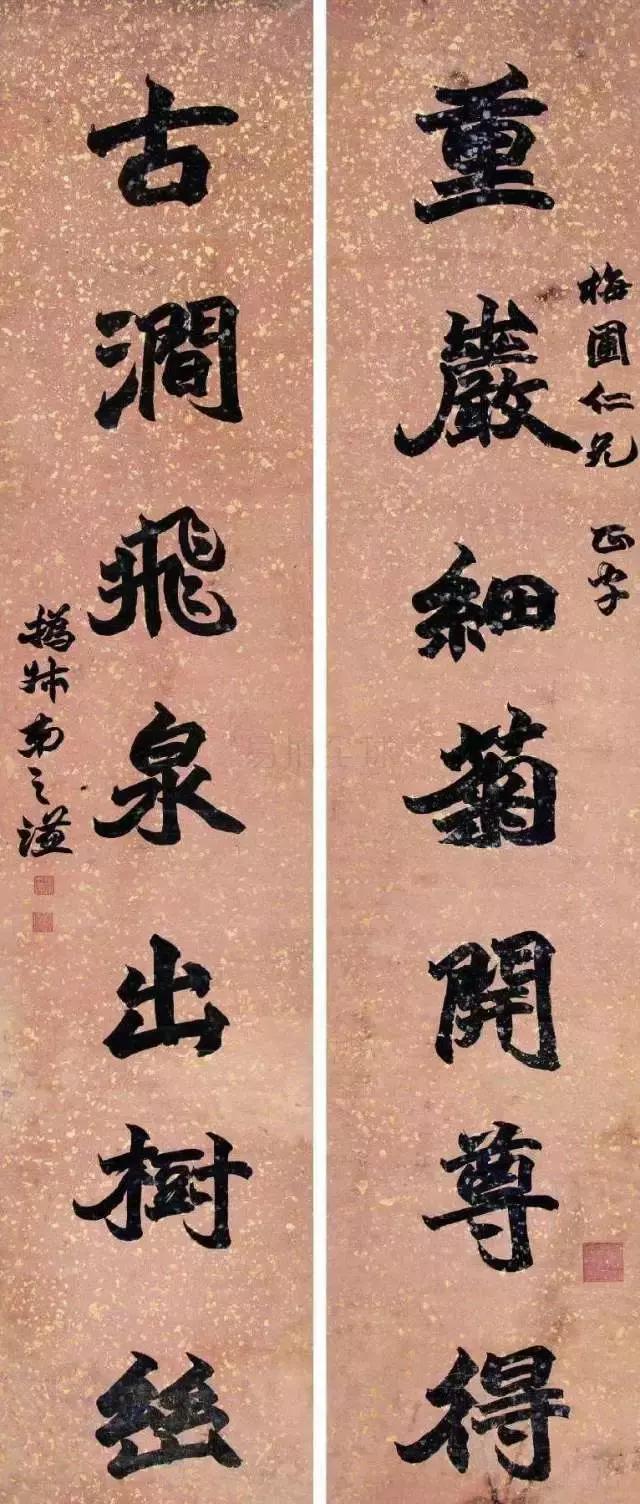 梅圃仁兄 正字
重巖細菊開尊得
古澗飛泉出樹
撝叔弟之謙